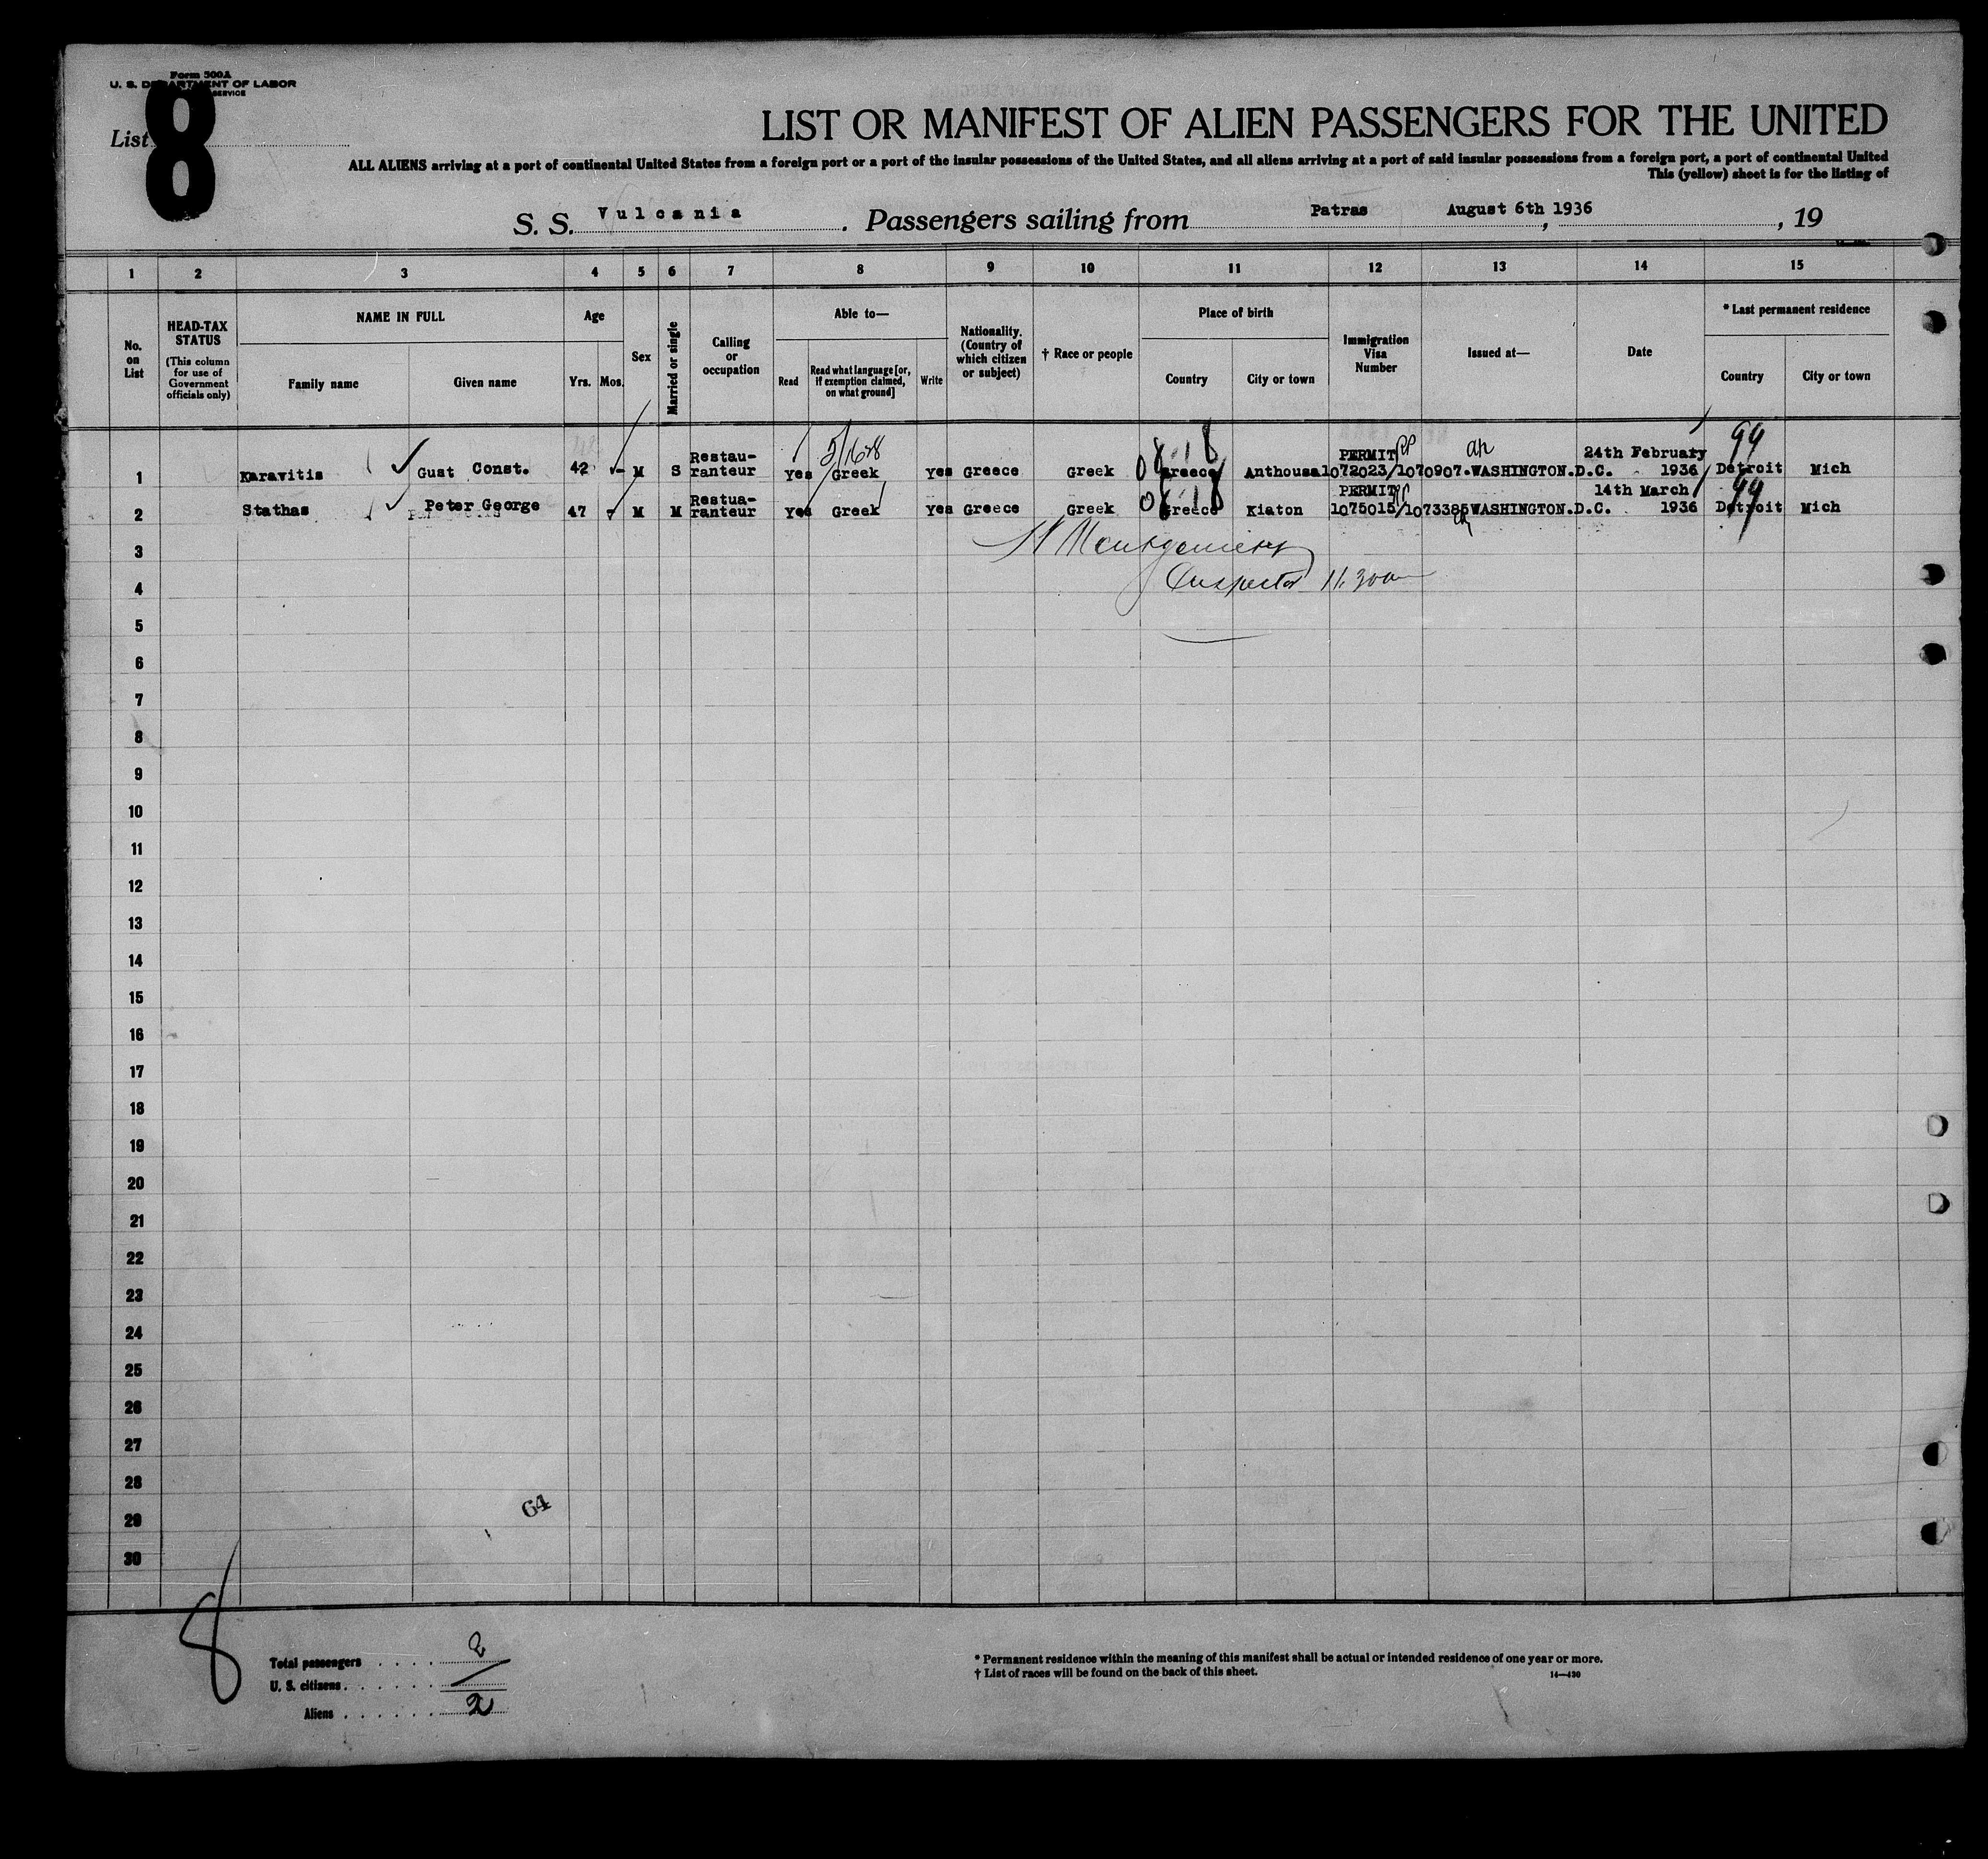 Form 500A
U. S. DEPARTMENT OF LABOR
SERVICE
List 8
LIST OR MANIFEST OF ALIEN PASSENGERS FOR THE UNITED
ALL ALIENS arriving at a port of continental United States from a foreign port or a port of the insular possessions of the United States, and all aliens arriving at a port of said insular possessions from a foreign port, a port of continental United
This (yellow) sheet is for the listing of
S. S. Vulcania. Passengers sailing from Patras, August 6th 1936, 19
1 2 3 4 5 6 7 8 9 10 11 12 13 14 15
No. on List
HEAD-TAX STATUS
(This column for use of Government officials only)
NAME IN FULL
Family name Given name
Age
Yrs. Mos.
Sex
Married or single
Calling or occupation
Able to—
Read
Read what language [or, if exemption claimed, on what ground]
Write
Nationality. (Country of which citizen or subject)
† Race or people
Place of birth
Country City or town
Immigration Visa Number
Issued at—
Date
* Last permanent residence
Country City or town
1 Karavitis Gust Const. 42 - M S Restau-ranteur Yes Greek Yes Greece Greek Greece Anthousa PERMIT 1072023/1070907.WASHINGTON.D.C. 24th February 1936 Detroit Mich
99
2 Stathas Peter George 47 - M M Restua-ranteur Yes Greek Yes Greece Greek Greece Kiaton PERMIT 1075015/1073385 WASHINGTON.D.C. 14th March 1936 Detroit Mich
99
3
Montgomery
4
Inspector 11.30am
5
6
7
8
9
10
11
12
13
14
15
16
17
18
19
20
21
22
23
24
25
26
27
28
29
30
64
8
Total passengers . . . . 2
U. S. citizens . . . . . . /
Aliens . . . . . . 2
* Permanent residence within the meaning of this manifest shall be actual or intended residence of one year or more.
† List of races will be found on the back of this sheet.
14—430